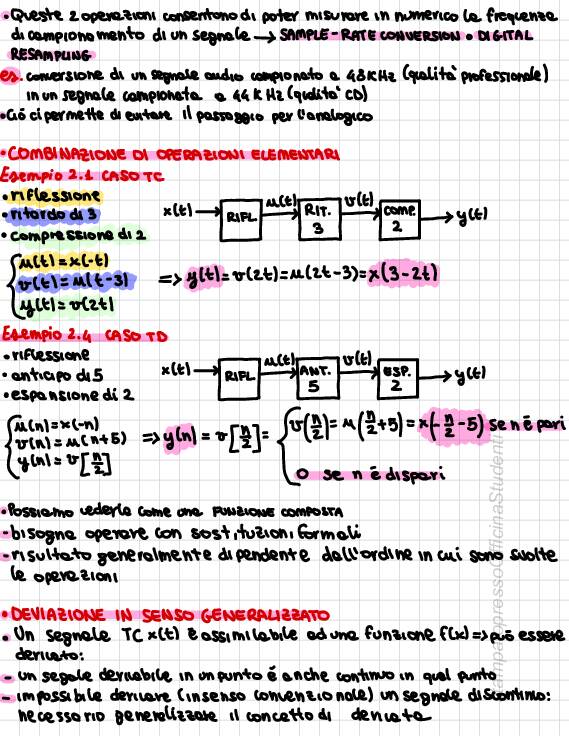 • Queste 2 operazioni consentono di poter misurare in numerico la frequenza
di campionamento di un segnale → SAMPLE-RATE CONVERSION o DIGITAL
RESAMPLING
es. conversione di un segnale audio campionato a 48KHz (qualità professionale)
in un segnale campionata a 44KHz (qualità CD)
• Ciò ci permette di evitare il passaggio per l'analogico
• COMBINAZIONE DI OPERAZIONI ELEMENTARI
Esempio 2.1 CASO TC
• riflessione
• ritardo di 3
• compressione di 2
x(t) → RIFL. u(t) → RIT. 3 v(t) → COMP. 2 → y(t)
{ u(t) = x(-t)
v(t) = u(t-3)
y(t) = v(2t)
=> y(t) = v(2t) = u(2t-3) = x(3-2t)
Esempio 2.4 CASO TD
• riflessione
• anticipo di 5
• espansione di 2
x(t) → RIFL. u(t) → ANT. 5 v(t) → ESP. 2 → y(t)
{ u(n) = x(-n)
v(n) = u(n+5)
y(n) = v[n/2]
=> y(n) = v[n/2] = { v(n/2) = u(n/2+5) = x(-n/2-5) se n è pari
0 se n è dispari
• Possiamo vederla come una FUNZIONE COMPOSTA
- bisogna operare con sostituzioni formali
- risultato generalmente dipendente dall'ordine in cui sono svolte
le operazioni
• DEVIAZIONE IN SENSO GENERALIZZATO
• Un segnale TC x(t) è assimilabile ad una funzione f(x) => può essere
derivato:
- un segale derivabile in un punto é anche continuo in quel punto
- impossibile derivare (in senso convenzionale) un segnale discontinuo:
necessario generalizzare il concetto di derivata